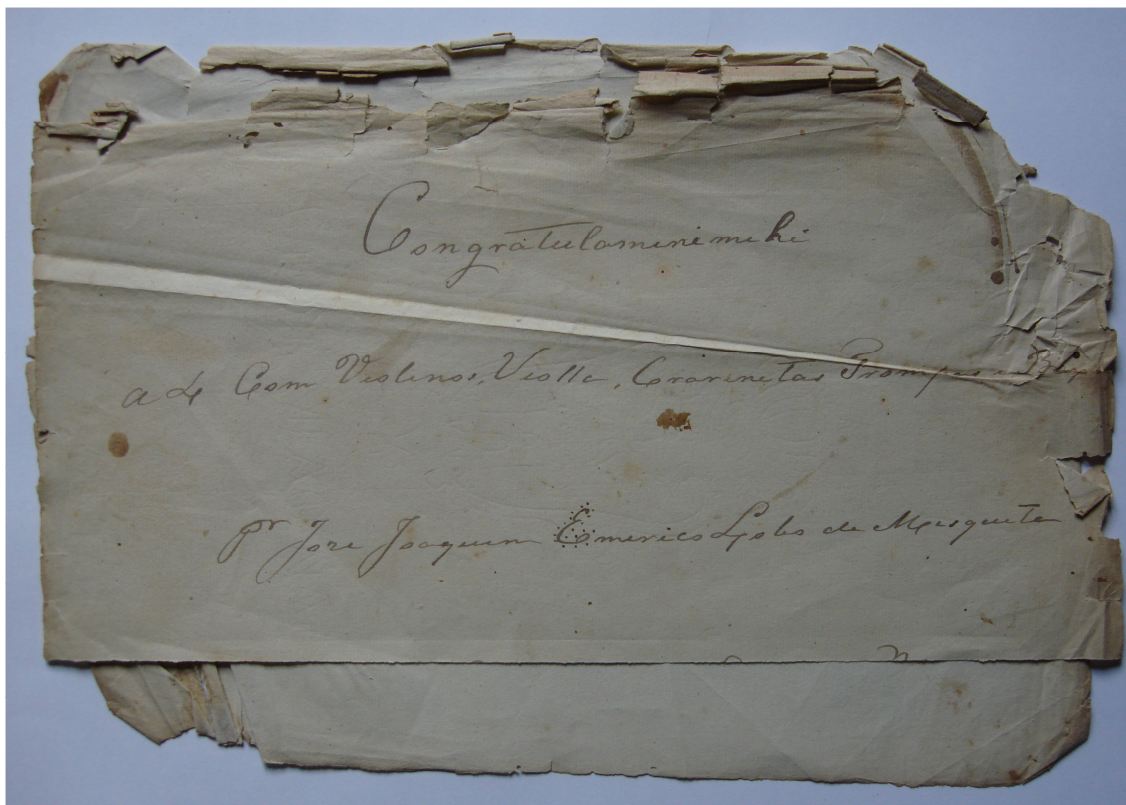 Congratulaminimihi
a 4 Com Violinos, Violla, Cravinetas Trompas
pr Joze Joaquim Emerico Lobo de Mesquita